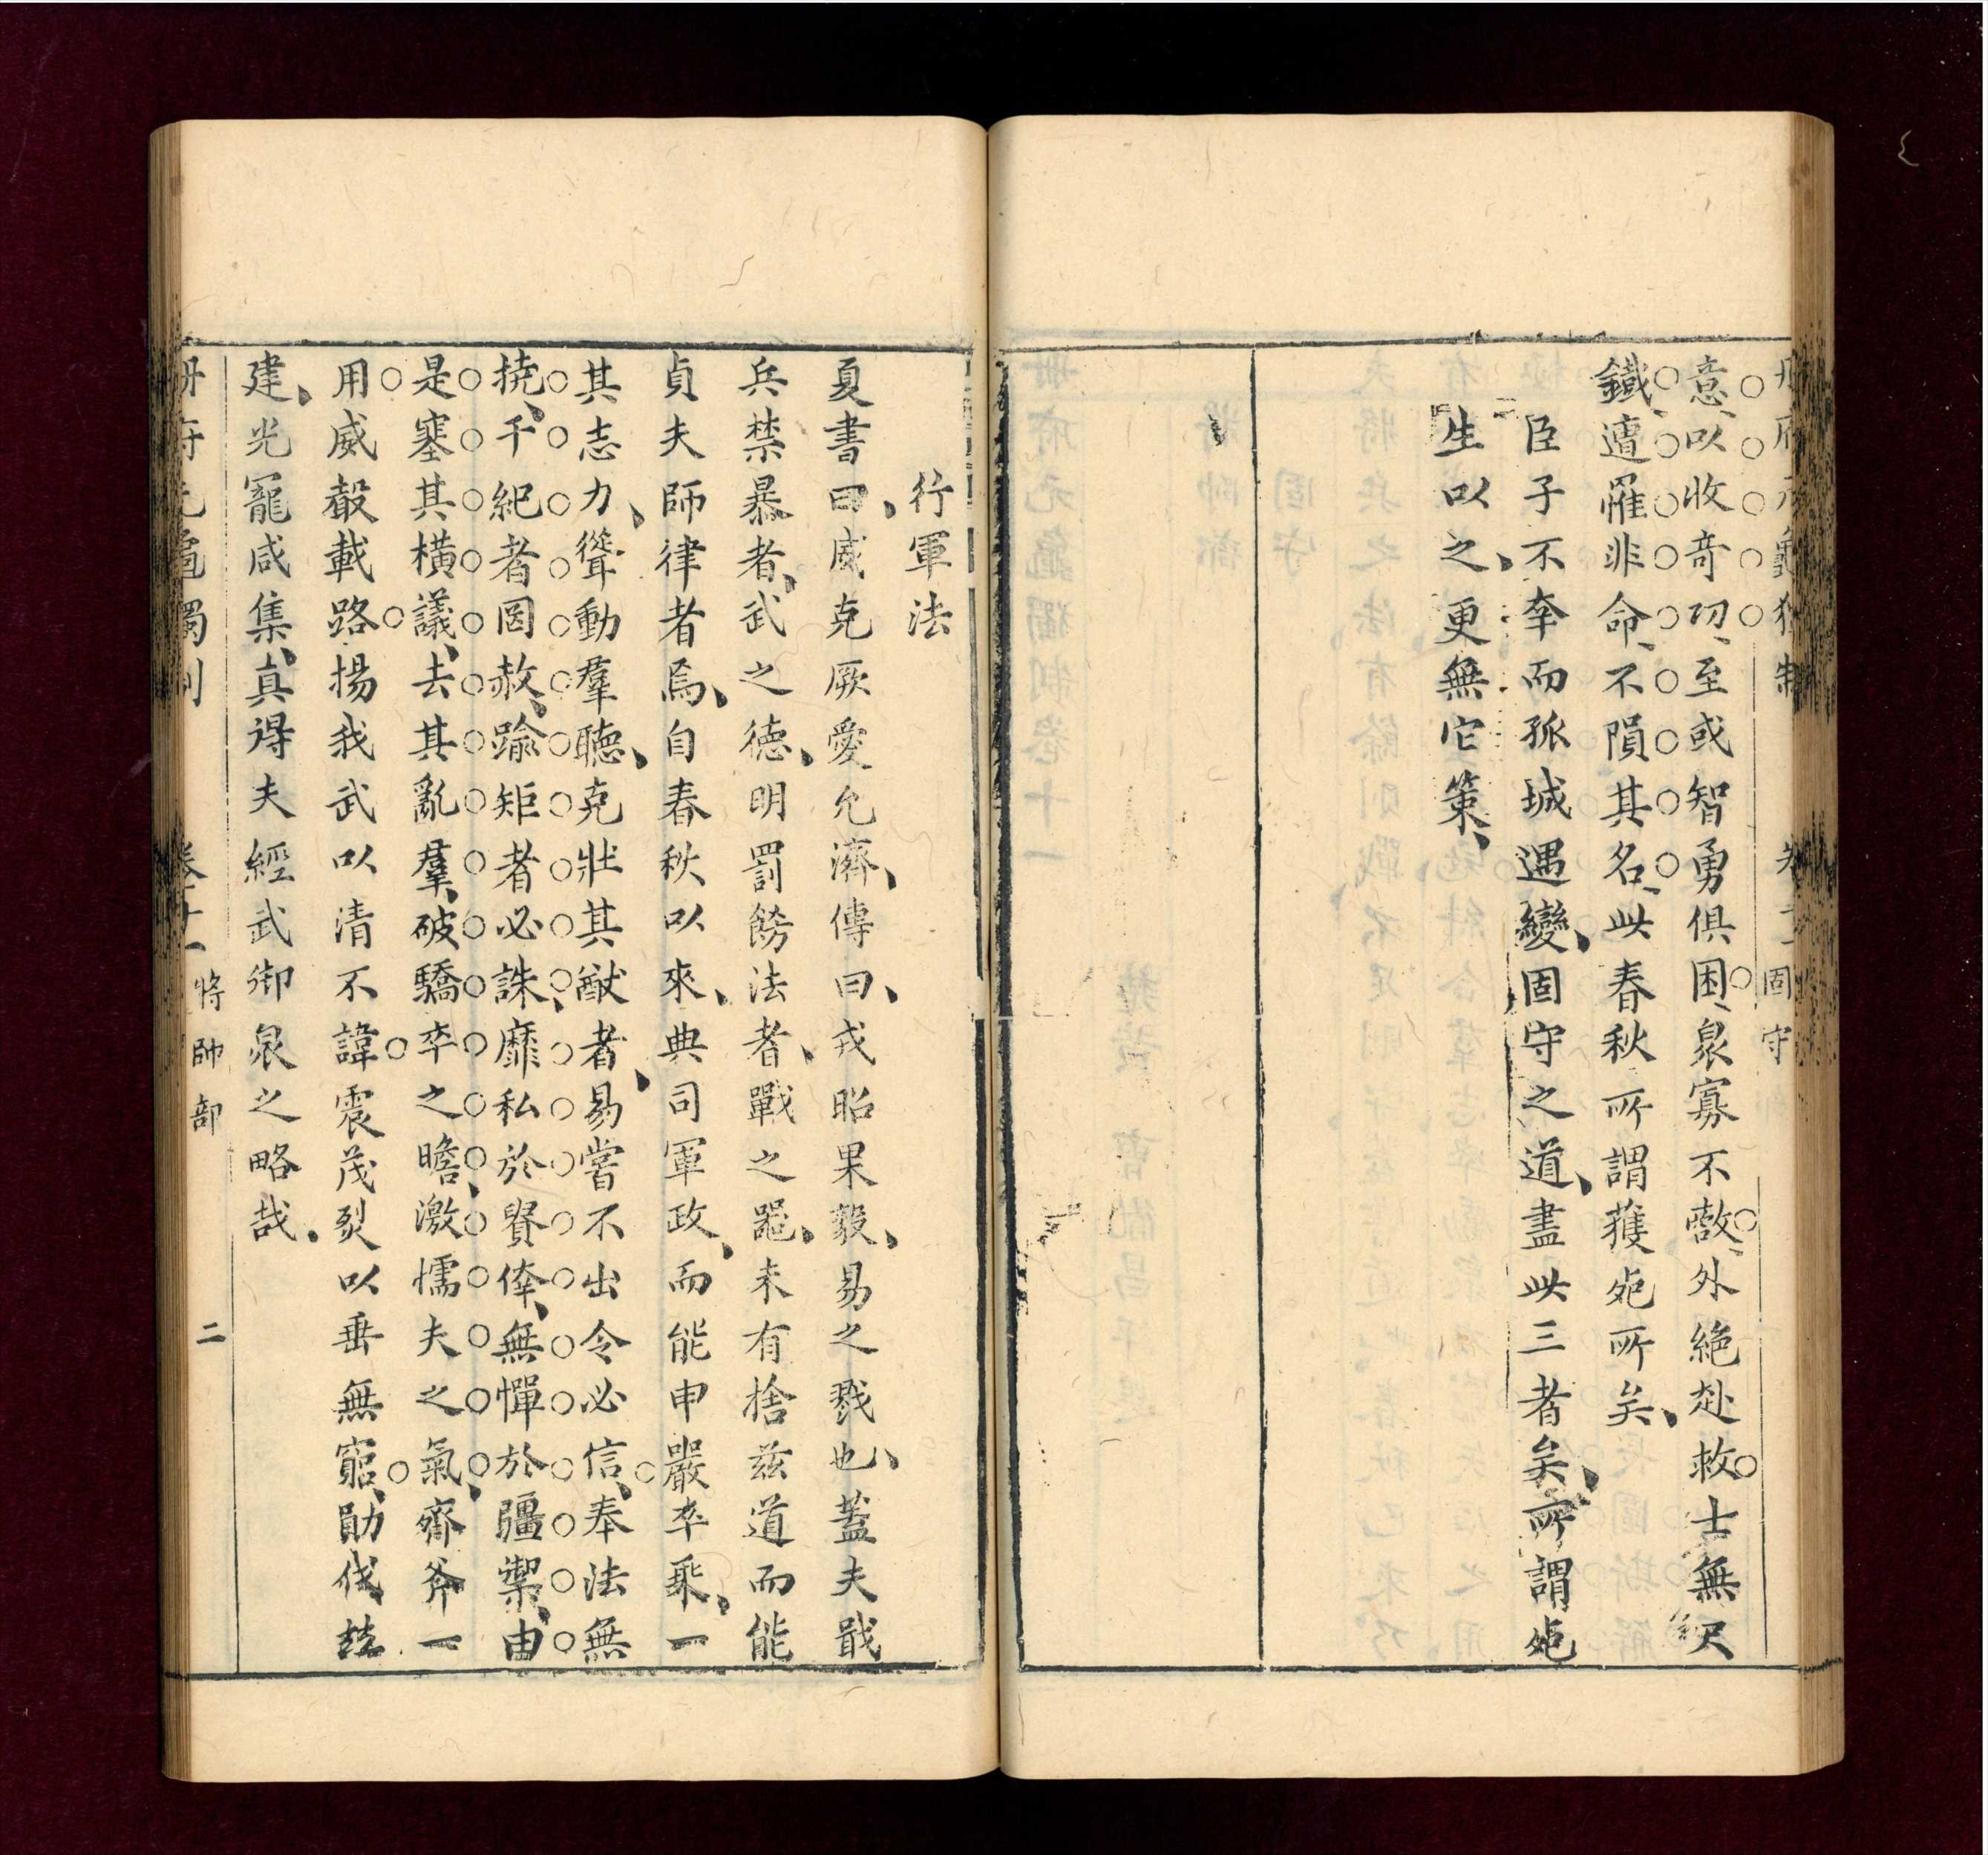 冊府元龜獨制 卷十一 固守
意、以收奇功、至或智勇俱困、衆寡不敵、外絶赴救士無尺
鐵、遭罹非命、不隕其名、此春秋所謂獲死所矣、
臣子不幸而孤城遇變、固守之道、盡此三者矣、所謂死
生以之、更無它策、
行軍法
夏書曰、威克厥愛允濟、傳曰、戎昭果毅、易之戮也、蓋夫戢
兵禁暴者、武之德、明罰飭法者、戰之器、未有捨兹道而能
貞夫師律者焉、自春秋以來、典司軍政、而能申嚴卒乘、一
其志力、聳動羣聽、克壯其猷者、曷嘗不出令必信、奉法無
撓、干紀者罔赦、踰矩者必誅、靡私於賢俸、無憚於彊禦、由
是塞其橫議、去其亂羣、破驕卒之瞻、激懦夫之氣、齊斧一
用威聲載路、揚我武以清不諱震茂烈以垂無窮、勛伐
建、光寵咸集、真得夫經武御衆之略哉、
冊府元龜獨制 卷十一 將帥部 二